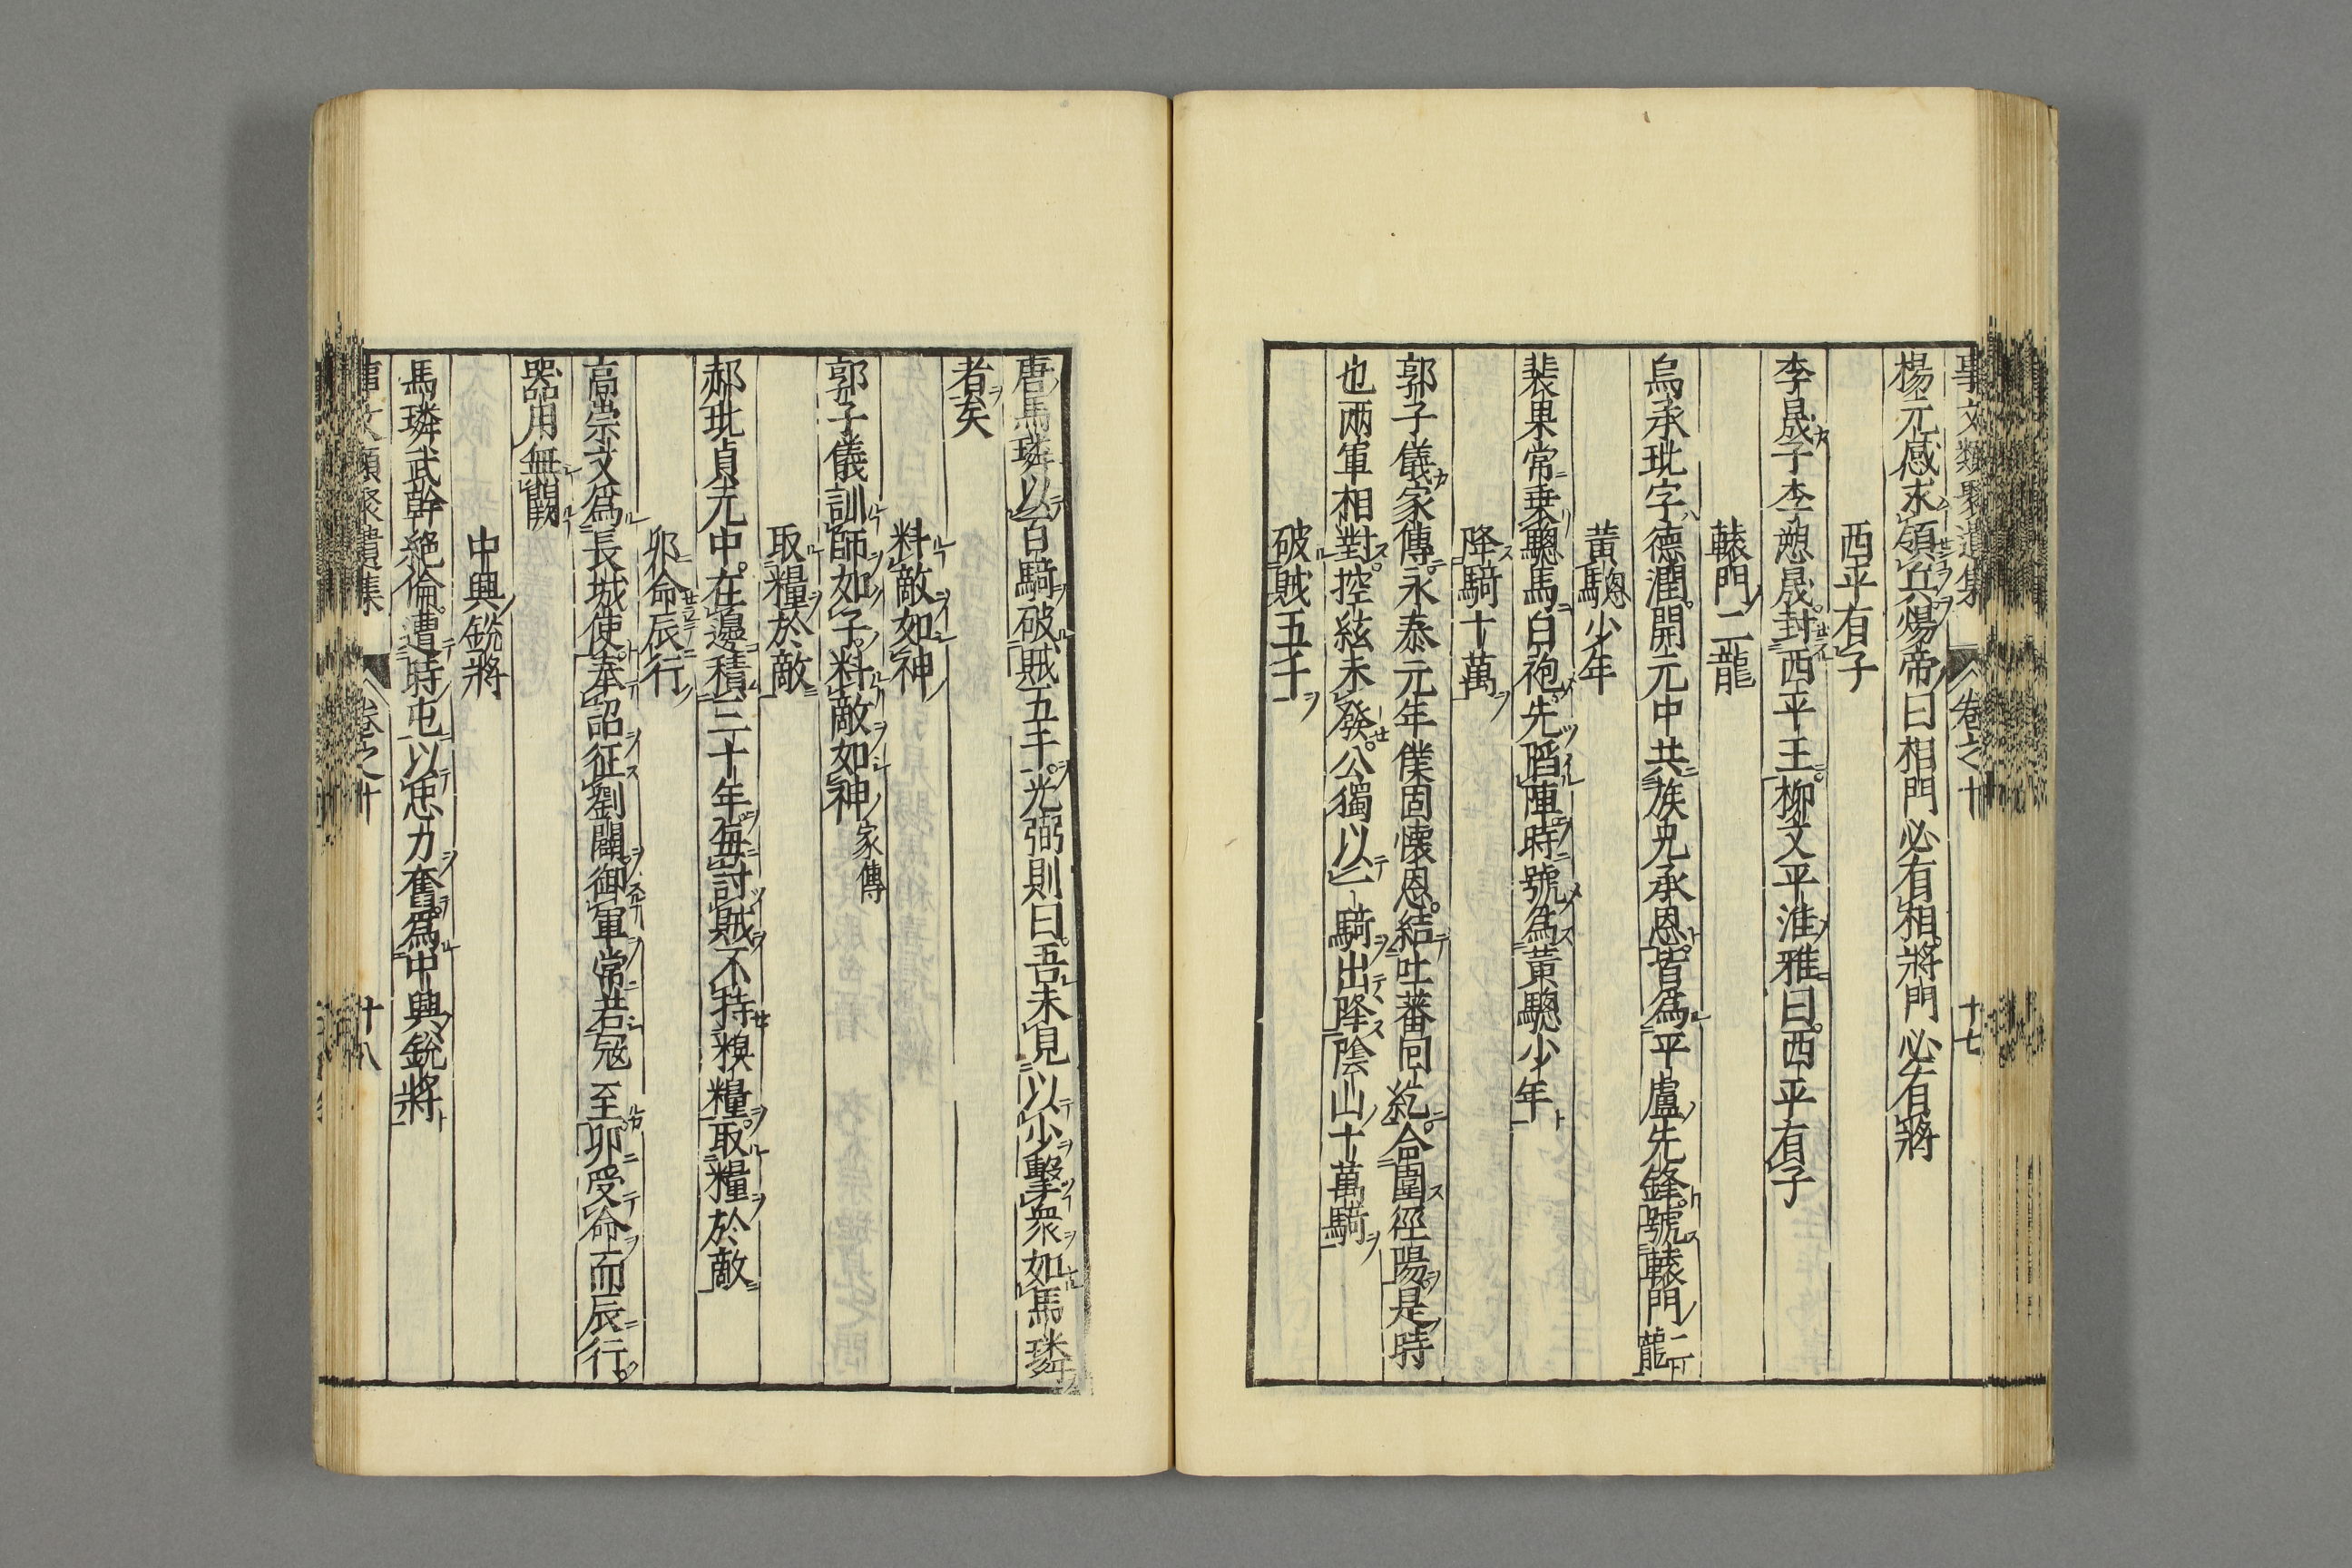 事文類聚遺集 卷之十 十七
楊元感求領兵煬帝曰相門必有相將門必有將
西平有子
李晟子李愬晟封西平王柳文平淮雅曰西平有子
轅門二龍
烏承玼字德潤開元中共族兄承恩皆為平盧先鋒號轅門二龍
黄驄少年
裴果常乗驄馬白袍先䧟陣時號為黄驄少年
降騎十萬
郭子儀家傳永泰元年僕固懐恩結吐蕃囘紇合圍徑陽是時
也兩軍相對控絃未發公獨以一騎出降陰山十萬騎
破賊五千
唐馬璘以百騎破賊五千光弼則曰吾未見以少擊衆如馬璘
者矣
料敵如神
郭子儀訓師如子料敵如神家傳
取糧於敵
郝玭貞元中在邊積三十年毎討賊不持糗糧取糧於敵
卯命辰行
高崇文為長城使奉詔征劉闢御軍常若冦至卯受命而辰行
器用無闕
中興銳將
馬璘武幹絶倫遭時屯以忠力奮為中興銳將
事文類聚遺集 卷之十 十八